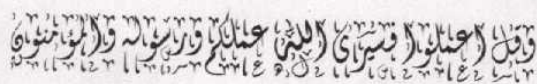 وقل اعملوا فسيرى الله عملكم ورسوله والمؤمنون